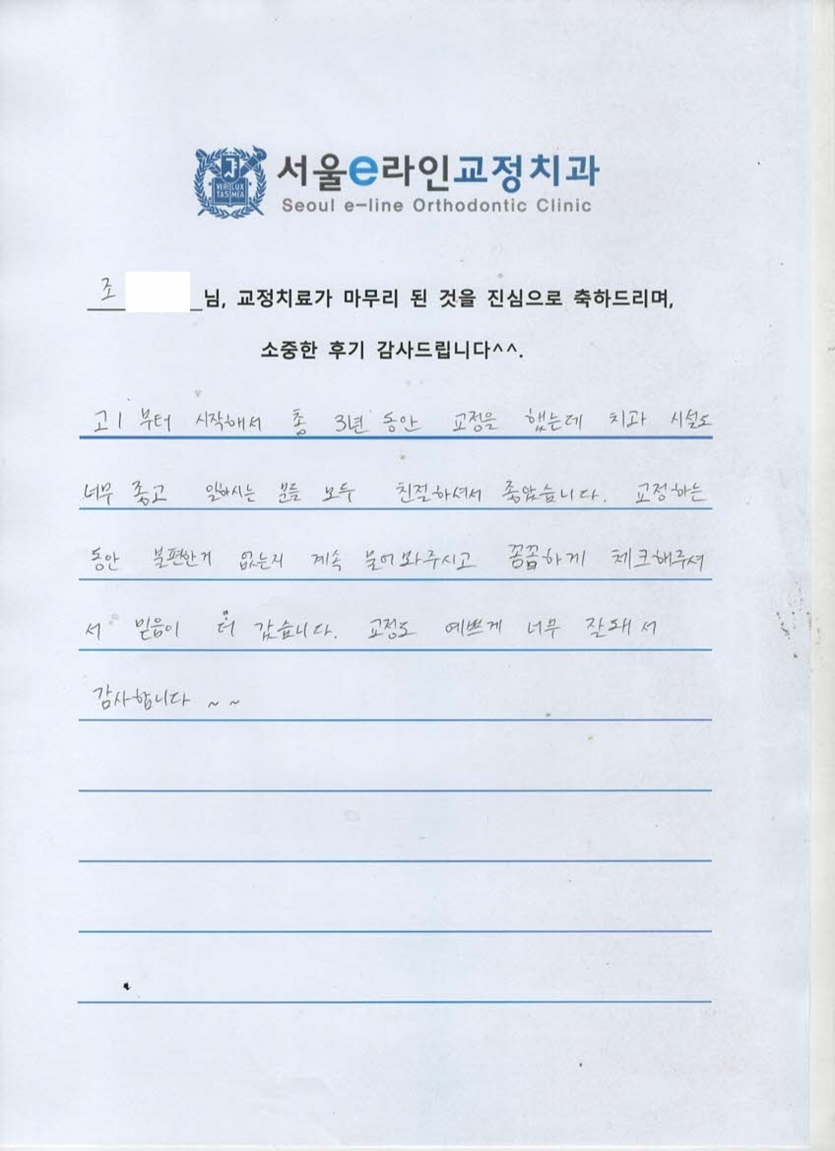 VERI LUX TAS MEA
서울e라인교정치과
Seoul e-line Orthodontic Clinic
조 님, 교정치료가 마무리 된 것을 진심으로 축하드리며,
소중한 후기 감사드립니다^^.
고1 부터 시작해서 총 3년 동안 교정을 했는데 치과 시설도
너무 좋고 일하시는 분들 모두 친절하셔서 좋았습니다. 교정하는
동안 불편한거 없는지 계속 물어봐주시고 꼼꼼하게 체크해주셔
서 믿음이 더 갔습니다. 교정도 예쁘게 너무 잘돼서
감사합니다 ~ ~